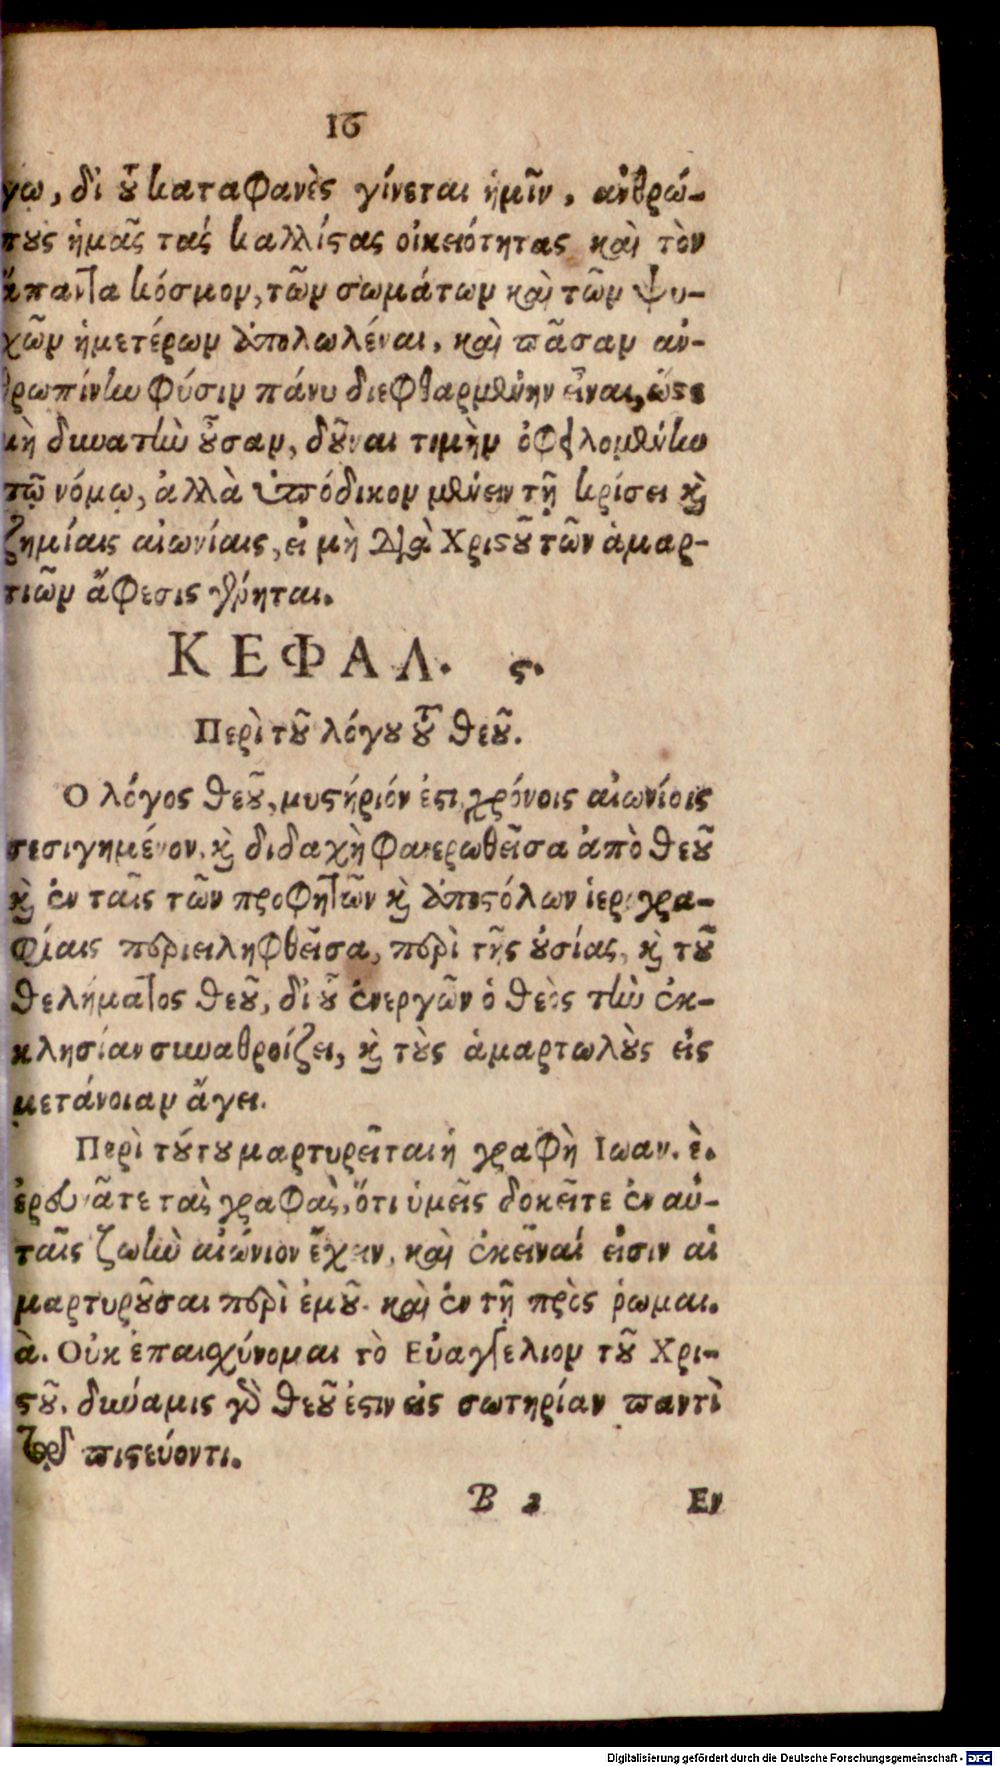 16
γω, δι ȣ͂ καταφανὲς γίνεται ἡμῖν, ἀνθρώ-
πȣς ἡμᾶς τὰς καλλίϛας οἰκειότητας καὶ τὸν
ἅπαντα κόσμον, τῶν σωμάτων καὶ τῶν ψυ-
χῶν ἡμετέρων ἀπολωλέναι, καὶ πᾶσαν ἀν-
θρωπίνην φύσιν πάνυ διεφθαρμένην εἶναι, ὥϛε
μὴ δυνατὴν ȣ͂σαν, δȣ͂ναι τιμὴν ὀφειλομένην
τῷ νόμῳ, ἀλλὰ ὑπόδικον μένειν τῇ κρίσει ϗ
ζημίαις αἰωνίαις, εἰ μὴ Διὰ Χριϛȣ͂ τῶν ἁμαρ-
τιῶν ἄφεσις γένηται.
ΚΕΦΑΛ. ϛ.
Περὶ τȣ͂ λόγȣ τȣ͂ θεȣ͂.
Ο λόγος θεȣ͂, μυϛήριόν ἐϛι χρόνοις αἰωνίοις
σεσιγημένον, ϗ διδαχὴ φανερωθεῖσα ἀπὸ θεȣ͂
ϗ ἐν ταῖς τῶν προφητῶν ϗ ἀποϛόλων ἱερογρα-
φίαις περιειληφθεῖσα, περὶ τῆς ȣ̓σίας, ϗ τȣ͂
θελήματος θεȣ͂, δι ȣ͂ ἐνεργῶν ὁ θεὸς τὴν ἐκ-
κλησίαν συναθροίζει, ϗ τȣ̀ς ἁμαρτωλȣ̀ς εἰς
μετάνοιαν ἄγει.
Περὶ τȣ́τȣ μαρτυρεῖται ἡ γραφὴ Ιωαν. ὲ.
ἐρευνᾶτε τὰς γραφὰς, ὅτι ὑμεῖς δοκεῖτε ἐν αὐ-
ταῖς ζωὴν αἰώνιον ἔχειν, καὶ ἐκεῖναί εἰσιν αἱ
μαρτυρȣ͂σαι περὶ ἐμȣ͂. καὶ ἐν τῇ πρὸς ῥωμαι.
ὰ. Οὐκ ἐπαισχύνομαι τὸ Εὐαγγελιον τȣ͂ Χρι-
ϛȣ͂. δύναμις γὰρ θεȣ͂ ἐϛιν εἰς σωτηρίαν παντὶ
τῷ πιϛεύοντι.
B 2 Εν
Digitalisierung gefördert durch die Deutsche Forschungsgemeinschaft - DFG